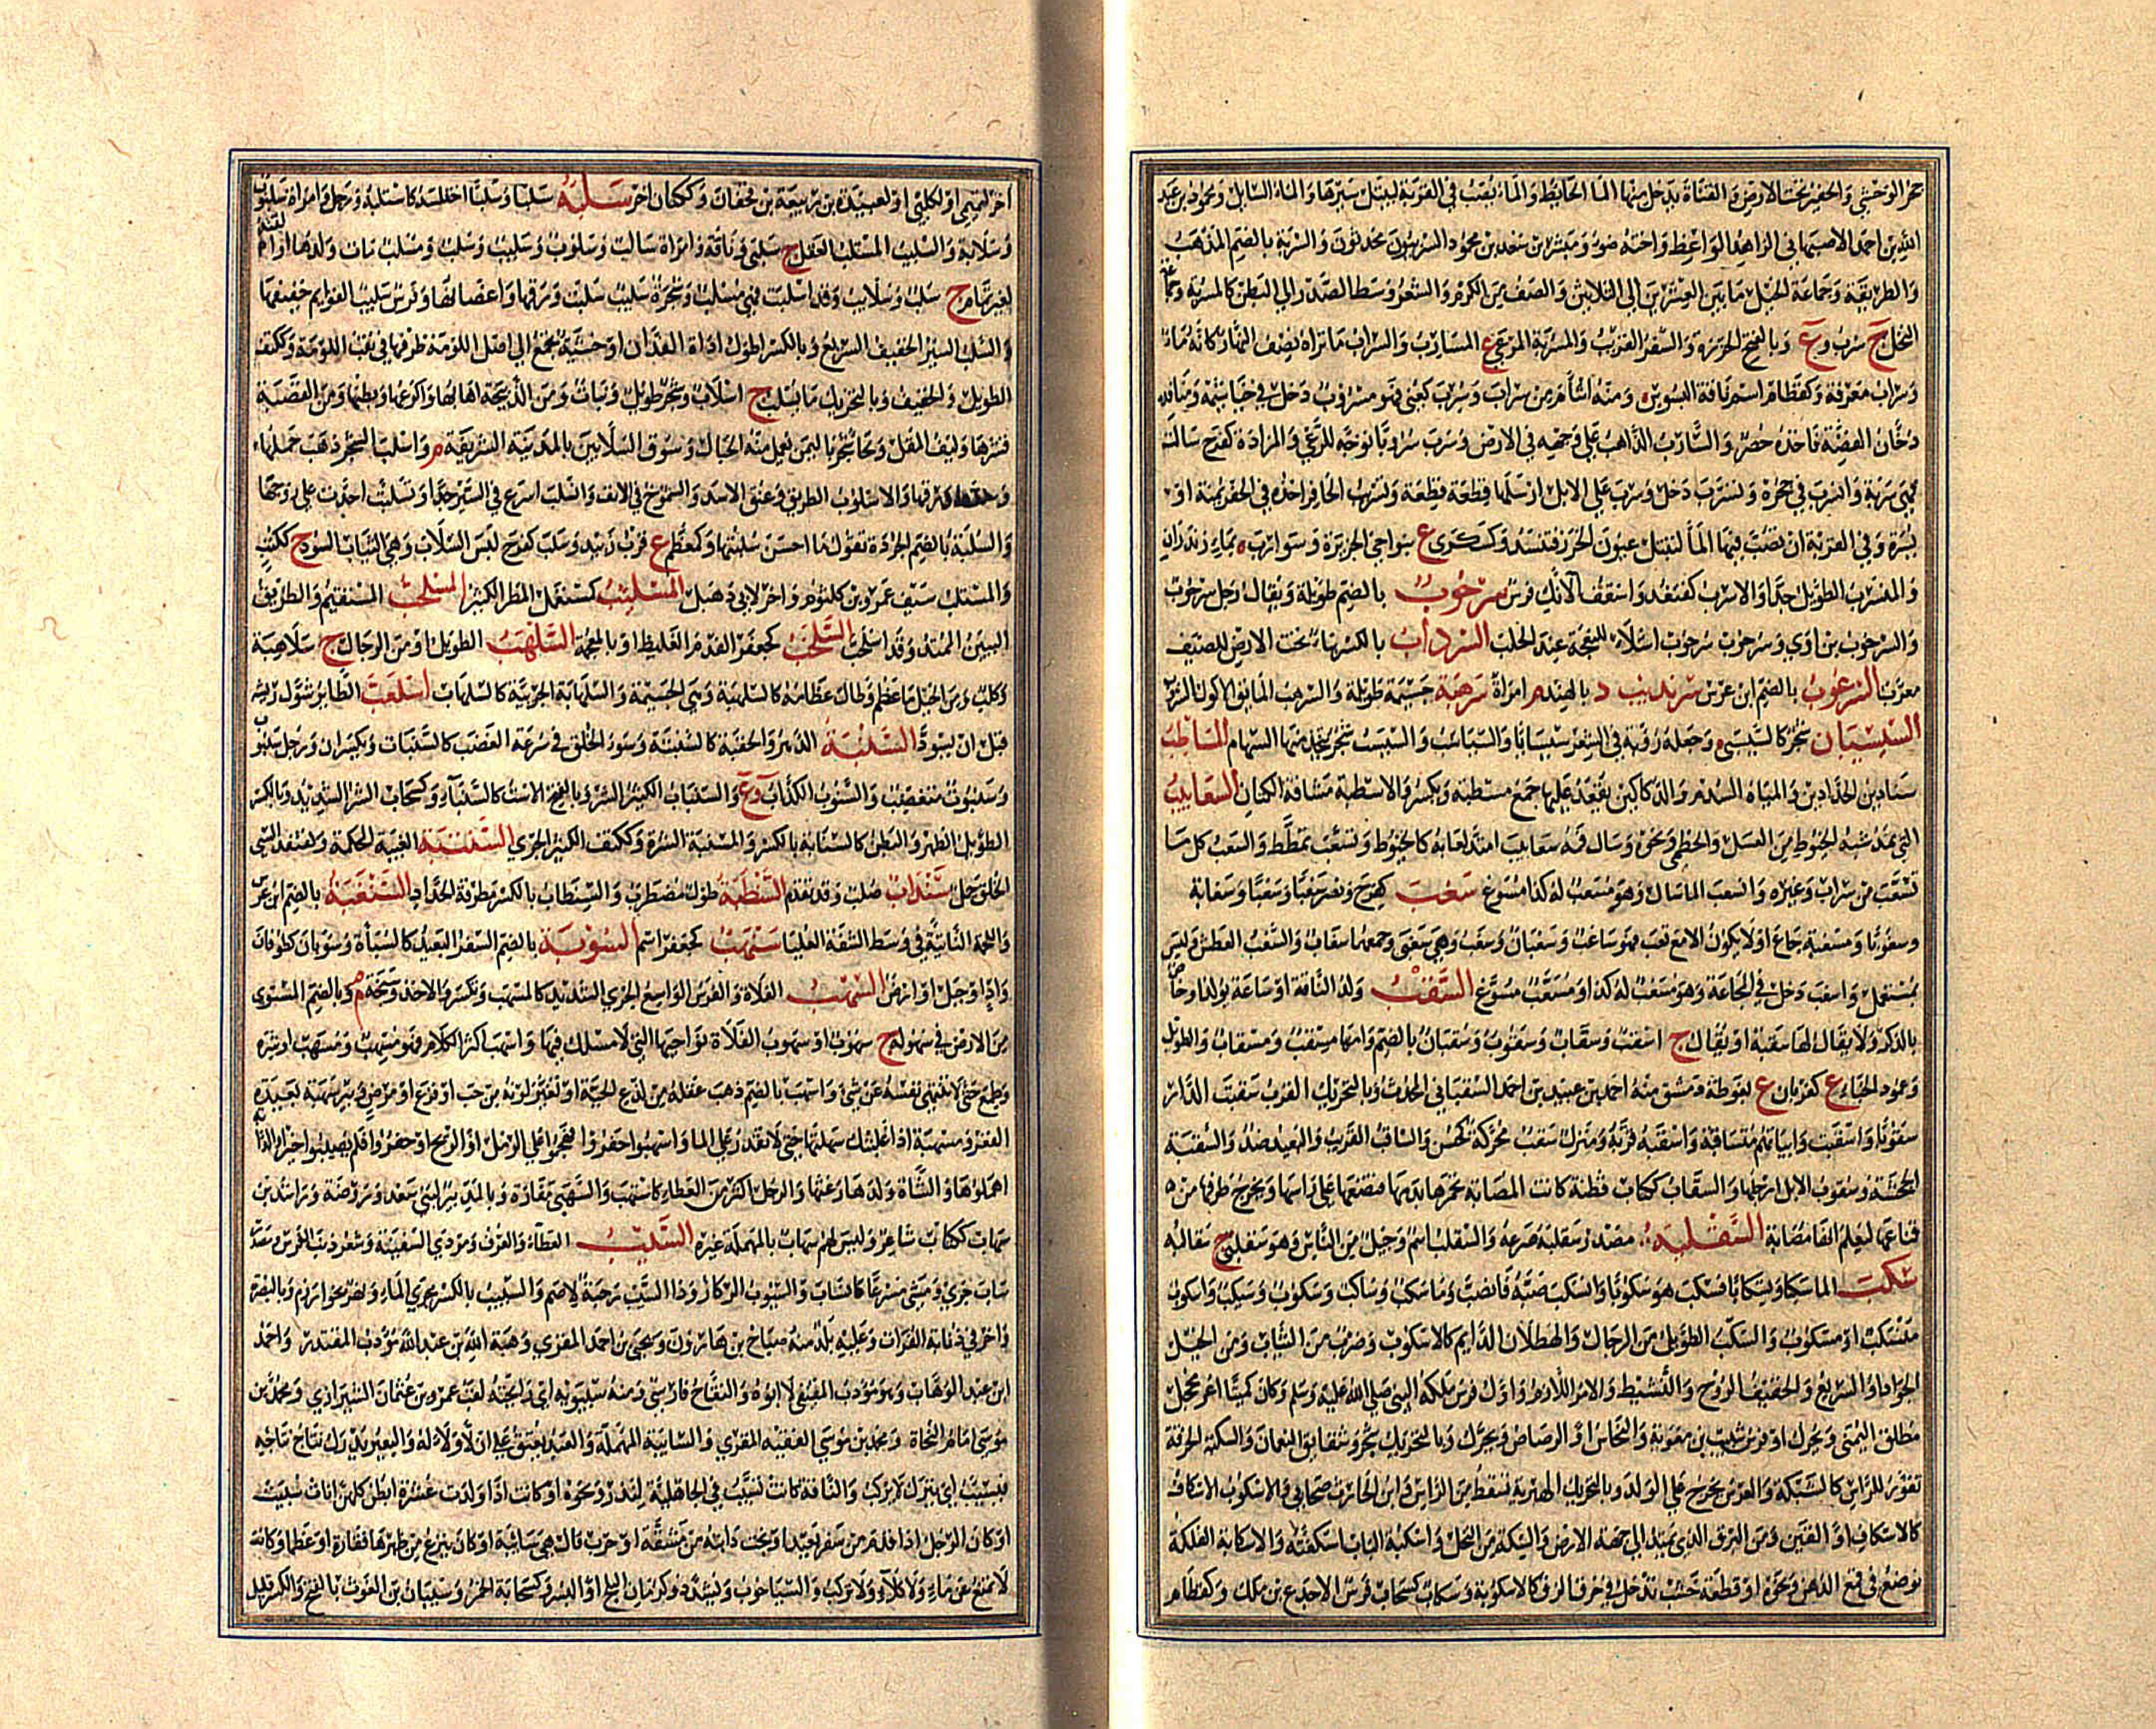 حمر الوحشي والحفير تحت الارض والقناة يدخل منها الما الحايط والماء يُصَبُّ في القربة ليبتل سيرها والماء السايل ومحمود بن عبد
الله بن احمد الاصبهاني الزاهد الواعظ واخته ضوء ومبشر بن سعد بن محمود السربيون محدثون والسربة بالضم المذهب
والطريقة وجماعة الخيل ما بين العشرين الى الثلاثين والصف من الكرم والشعر وسط الصدر الي البطن كالمسربة وجماعة
النخل ج سرب وع وبالفتح الخرزة والسفر القريب والمسربة المرعي ج المسارب والسراب ما تراه نصف النهار كانه ماء
وسراب معرفة وكقطام اسم ناقة البسوس ومنه اشأم من سراب وسرب كعني فهو مسروب دخل في خياشيمه ومنافذه
دخان الفضة فاخذه حصر والسارب الذاهب على وجهه في الارض وسرب سروبا توجه للرعي والمزادة كفرح سالت
فهي سربة وانسرب في جحره وتسرب دخل وسرب على الابل ارسلها قطعة قطعة وتسريب الحافر اخذه في الحفر يمنة او
يسرة وفي القربة ان تصب فيها الما لتبتل عيون الخرز فتنسد وكسكرى ع بنواحي الجزيرة وسوراب ة بمازندران
والمنسرب الطويل جدا والاسرب كقنفذ واسقف الآنك فرس سرحوب بالضم طويلة ويقال رجل سرحوب
والسرحوب بن آوي وسرحوب سرحوب اشلاء للنعجة عند الحلب السرداب بالكسر بناء تحت الارض للصيف
معرب السرعوب بالضم ابن عرس سرنديب د بالهند م امراة سرهبة جسيمة طويلة والسرهب المايق الاكول الشروب
السيسبان شجر كالسيسبى وجعله رؤبة في الشعر سيسابا والسباسب والسيسب شجر يتخذ منها السهام المساطب
سنادين الحدادين والمياه السدم والدكاكين يقعد عليها جمع مسطبة ويكسر والاسطبة مشاقة الكتان السعابيب
التي تمد شبه الخيوط من العسل والخطمي ونحوه وسال فمه سعابيب امتد لعابه كالخيوط وتسعب تمطط والسعب كل ما
تسعب من شراب وغيره وانسعب الماء سال وهو مسعب له كذا مسوغ سغب كفرح ونصر سغبا وسغبا وسغابة
وسغوبا ومسغبة جاع او لا يكون الا مع تعب فهو ساغب وسغبان وسغب وهي سغبى وجمعهما سغاب والسغب العطش وليس
بمستعمل واسغب دخل في المجاعة وهو مسغب له كذا ومسغب مسوغ السقب ولد الناقة او ساعة يولد او خاص
بالذكر ولا يقال لها سقبة او يقال ج اسقب وسقاب وسقوب وسقبان بالضم وامها مسقب ومسقاب والطويل
وعمود الخباء ع كغربان ع بغوطة دمشق منه احمد بن عبيد بن احمد السقباني المحدث وبالتحريك القرب سقبت الدار
سقوبا واسقبت وابياتهم متساقبة واسقبه قربه ومنزل سقب محركة كمحسن والساقب القريب والبعيد ضد والسقبة
الجحشة وسقوب الابل ارجلها والسقاب ككتاب قطنة كانت المصابة تحمرها بدمها فتضعها على راسها وتخرج طرفها من
قناعها ليعلم انها مصابة السقلبة مصدر سقلبه صرعه والسقلب اسم وجيل من الناس وهو سقلبي ج سقالبة
سكب الماء سكبا وتسكابا فسكب هو سكوبا وانسكب صبه فانصب وماء سكب وساكب وسكوب وسيكب واسكوب
منسكب او مسكوب والسكب الطويل من الرجال والهطلان الدايم كالاسكوب وضرب من الثياب ومن الخيل
الجواد او السريع والخفيف الروح والنشيط والامر اللازم واول فرس ملكه النبي صلى الله عليه وسلم وكان كميتا اغر محجل
مطلق اليمنى ويحرك او فرس شبيب بن معوية والنحاس او الرصاص ويحرك وبالتحريك شجر وشقايق النعمان والسكبة الخرقة
تقور للراس كالشبكة والغرس يخرج على الولد وبالتحريك الهبرية تسقط من الراس وابن الحارث صحابي والاسكوب الاسكاف
كالاسكاف او القين ومن البرق الذي يمتد الى جهة الارض والسكة من النخل واسكبة الباب اسكفته والاسكابة الفلكة
توضع في قمع الدهن ونحوه او قطعة خشب تدخل في خرق الزق كالاسكوبة وسكاب كسحاب فرس الاجدع بن مالك وكقطام
اخر لتميمي او لكلبي او لعبيدة بن ربيعة بن قحفان وككتان اخر سلبه سلبا وسلبا اختلسه كاستلبه ورجل وامراة سلبوت
وسلابة والسليب المستلب العقل ج سلبى وناقة وامراة سالب وسلوب وسليب وسلب ومسلب مات ولدها او القته
لغير تمام ج سلب وسلايب وقد اسلبت فهي مسلب وشجرة سليب سلبت ورقها واغصانها وفرس سليب القوايم خفيفها
والسلب السير الخفيف السريع وبالكسر اطول اداة الفدان او خشبة تجمع الي اصل اللومة طرفها في ثقب اللومة وككتف
الطويل والخفيف وبالتحريك ما يسلب ج اسلاب وشجر طويل ونبات ومن الذبيحة اهابها واكرعها وبطنها ومن القصبة
قشرها وليف المقل ولحا شجر باليمن يعمل منه الحبال وسوق السلابين بالمدينة الشريفة م واسلب الشجر ذهب حملها
ورقها والاسلوب الطريق وعنق الاسد والشموخ في الانف وانسلب اسرع في السير جدا وتسلبت احدت على زوجها
والسلبة بالضم الجردة تقول ما احسن سلبتها وكمعظم ع قرب زبيد وسلب كفرح لبس السلاب وهي الثياب السود ج ككتب
والمستلب سيف عمرو بن كلثوم واخر لابي دهبل المسلئب كمشمعل المطر الكثير المسلحب المستقيم والطريق
البين الممتد وقد اسلحب السلخب كجعفر الفدم الغليظ او بالمعجمة السلهب الطويل او من الرجال ج سلاهبة
وكلب ومن الخيل ما عظم وطال عظامه كالسلهبة وهي الجسيمة والسلهابة الجريئة كالسلهاب اسلغب الطائر شوك ريشه
قبل ان يسود السنبة الدهر والحقبة كالسنبتة وسوء الخلق في سرعة الغضب كالسنبات ويكسران ورجل سنبوب
وسنبوت متغضب والسنوب الكذاب وع والسنباب الكثير الشر وبالفتح الاست كالسنباء وكسحاب الشر الشديد وبالكسر
الطويل الظهر والبطن كالسنابة بالكسر والمسنبة الشرة وككتف الكثير الجري السنتبة الغيبة المحكمة وكقنفذ السيء
الخلق رجل سنداب صلب وقد تقدم السنطبة طول مضطرب والسنطاب بالكسر مطرقة الحداد السنعبة بالضم ابن عرس
واللحمة الناتية في وسط الشفة العليا سنهب كجعفر اسم السوبة بالضم السفر البعيد كالسبأة وسوبان كطوفان
واد او جبل او ارض السهب الفلاة والفرس الواسع الجري الشديد كالمسهب وتكسر والاخذ وسبخة م وبالضم المستوي
من الارض في سهولة ج سهوب او سهوب الفلاة نواحيها التي لا مسلك فيها واسهب اكثر الكلام فهو مسهب ومسهب او شره
وطمع حتى لا تنتهي نفسه عن شيء واسهب بالضم ذهب عقله من لدغ الحية او تغير لونه من حب او فزع او مرض وبئر سهبة بعيدة
القعر ومسهبة اذا غلبتك سهبتها حتى لا تقدر على الما واسهبوا حفروا فهجموا على الرمل او الريح او حفروا فلم يصيبوا خيرا والدابة
اهملوها والشاة ولدها رغثها والرجل اكثر من العطاء كاستهب والسهبى مفازة وبالمد بئر لبني سعد وروضة وراشد بن
سهاب ككتاب شاعر وليس لهم سهاب بالمهملة غيره السيب العطاء والعرف ومردي السفينة وشعر ذنب الفرس ومصدر
ساب جرى ومشى مسرعا كانساب والسيوب الركاز وذات السيب رحبة لاضم والسيب بالكسر مجرى الماء ونهر بخوارزم وبالبصرة
واخر في ذنابة الفرات وعليه بلد منه صباح بن هارون ويحيى بن احمد المقري وهبة الله بن عبد الله مؤدب المقتدر واحمد
ابن عبد الوهاب وهو مؤدب المقتفي لا ابوه والتفاح فارسي ومنه سيبويه اي رايحته لقب عمرو بن عثمان الشيرازي ومحمد بن
موسى امام النحاة ومحمد بن موسى الفقيه المصري والسايبة المهملة والعبد يعتق على ان لا ولاء له والبعير يدرك نتاج نتاجه
فيسيب اي يترك لا يركب والناقة كانت تسيب في الجاهلية لنذر ونحوه او كانت اذا ولدت عشرة ابطن كلهن اناث سيبت
او كان الرجل اذا قدم من سفر بعيد او نجت دابته من مشقة او حرب قال هي سائبة او كان ينزع من ظهرها فقارة او عظما وكانت
لا تمنع عن ماء ولا كلاء ولا تركب والسياب ويشدد وكرمان البلح او البسر وكسحابة الخمر وسيبان بن الغوث بالفتح والكسر قليل